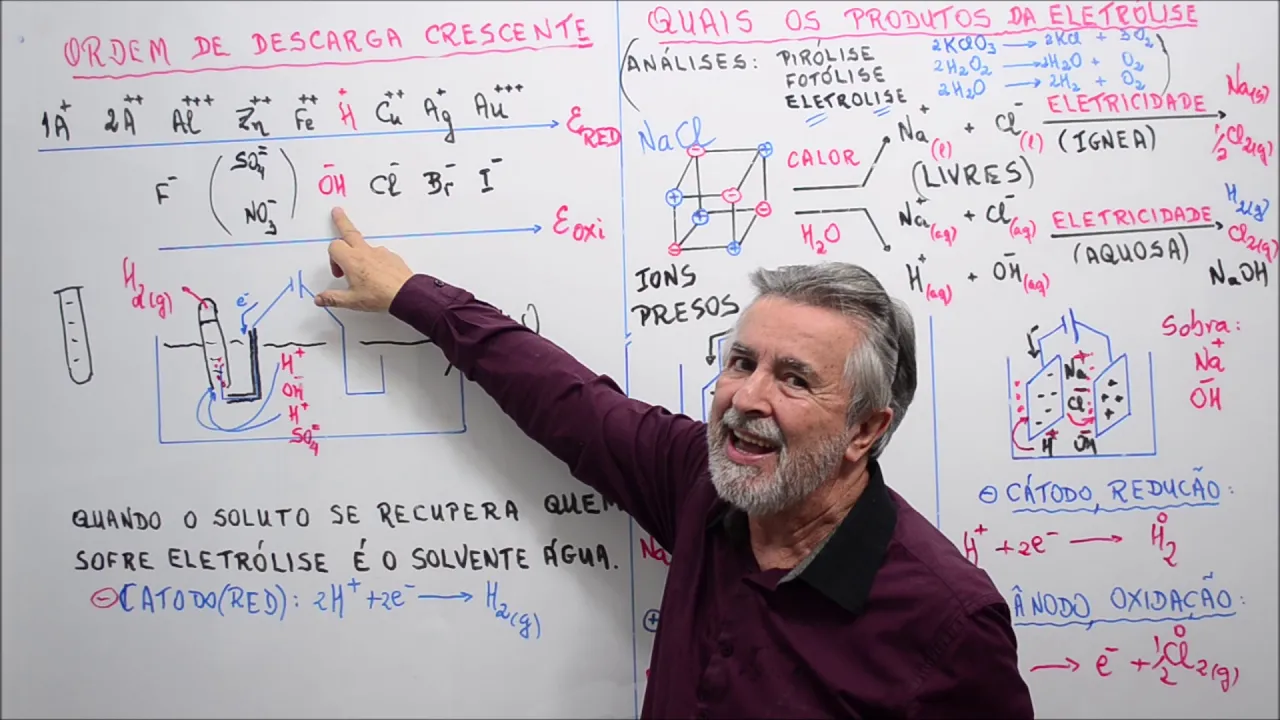 ORDEM DE DESCARGA CRESCENTE
1A⁺ 2A⁺⁺ Al⁺⁺⁺ Zn⁺⁺ Fe⁺⁺ H⁺ Cu⁺⁺ Ag⁺ Au⁺⁺⁺
ERED
F⁻ (SO₄⁼ NO₃⁻) OH⁻ Cl⁻ Br⁻ I⁻
Eoxi
H₂(g)
e⁻
H⁺
OH⁻
H⁺
SO₄⁼
QUANDO O SOLUTO SE RECUPERA QUEM
SOFRE ELETRÓLISE É O SOLVENTE ÁGUA.
⊖ CATODO(RED): 2H⁺ + 2e⁻ → H₂(g)
QUAIS OS PRODUTOS DA ELETRÓLISE
(ANÁLISES: PIRÓLISE 2KClO₃ → 2KCl + 3O₂
FOTÓLISE 2H₂O₂ → 2H₂O + O₂
ELETROLISE 2H₂O → 2H₂ + O₂)
NaCl
CALOR
Na⁺(l) + Cl⁻(l) ELETRICIDADE Na(s)
(IGNEA) ½Cl₂(g)
(LIVRES)
H₂O
Na⁺(aq) + Cl⁻(aq) ELETRICIDADE H₂(g)
(AQUOSA) Cl₂(g)
H⁺(aq) + OH⁻(aq) NaOH
IONS
PRESOS
Na⁺
Cl⁻
H⁺ OH⁻
Sobra:
Na⁺
OH⁻
⊖ CÁTODO, REDUCÃO:
H⁺ + 2e⁻ → H₂⁰
ÂNODO OXIDAÇÃO:
→ e⁻ + ½Cl₂⁰(g)